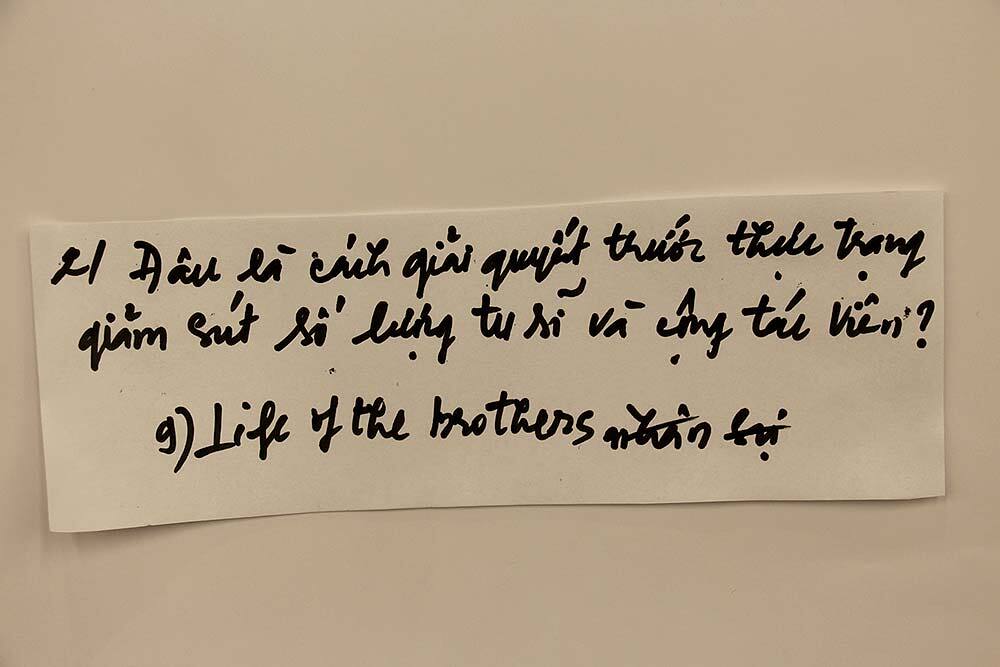 2/ Đâu là cách giải quyết trước thực trạng
giảm sút số lượng tu sĩ và cộng tác viên?
9) Life of the brothers nhân sự